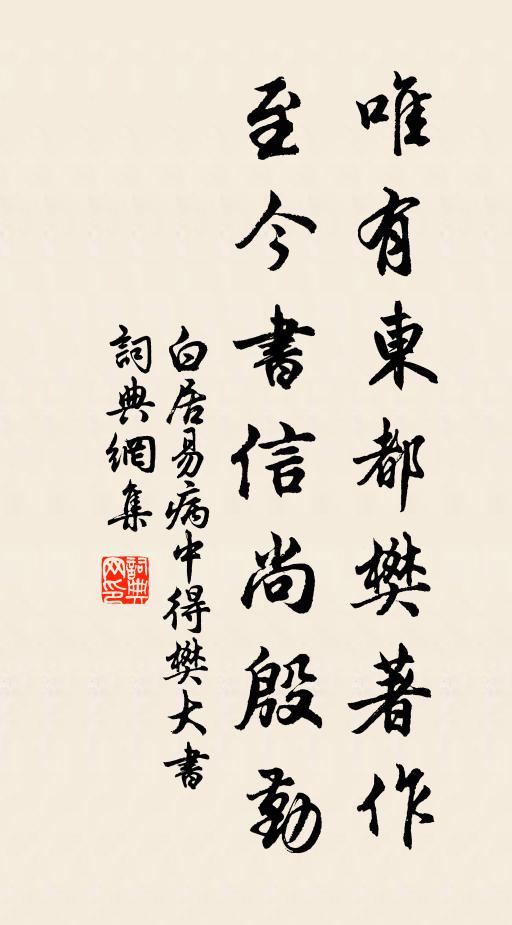 唯有東都樊著作
至今書信尚殷勤
白居易病中得樊大書
詞典網集
詞典
网印